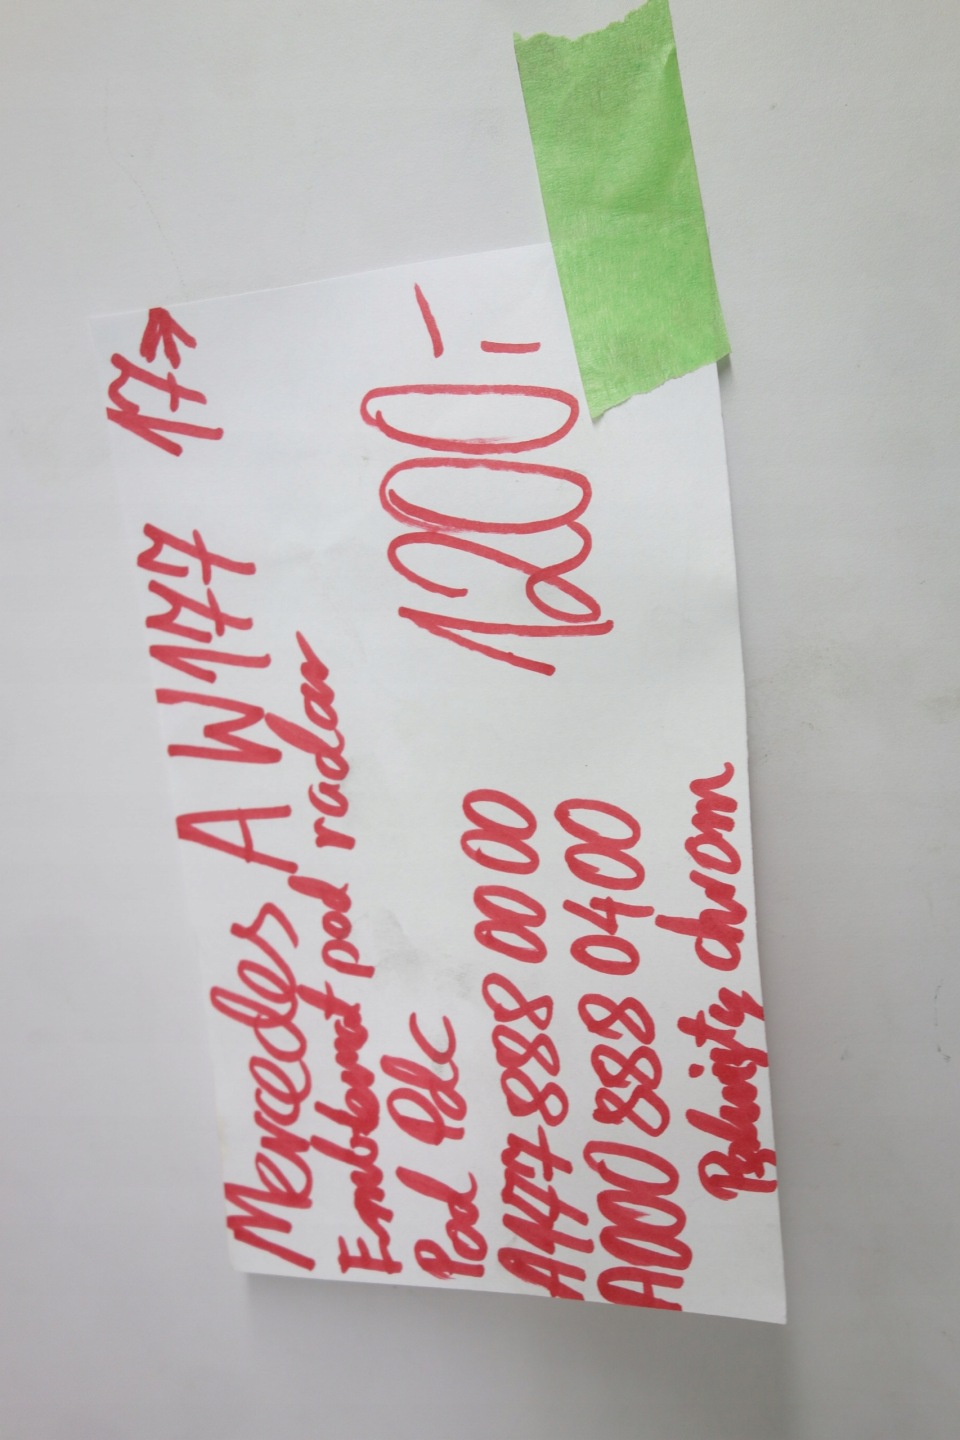 Mercedes A W177 17→
Emblemat pod radar
Pod Pdc
1200,-
A177 888 00 00
A000 888 04 00
Pgladzisty chrom